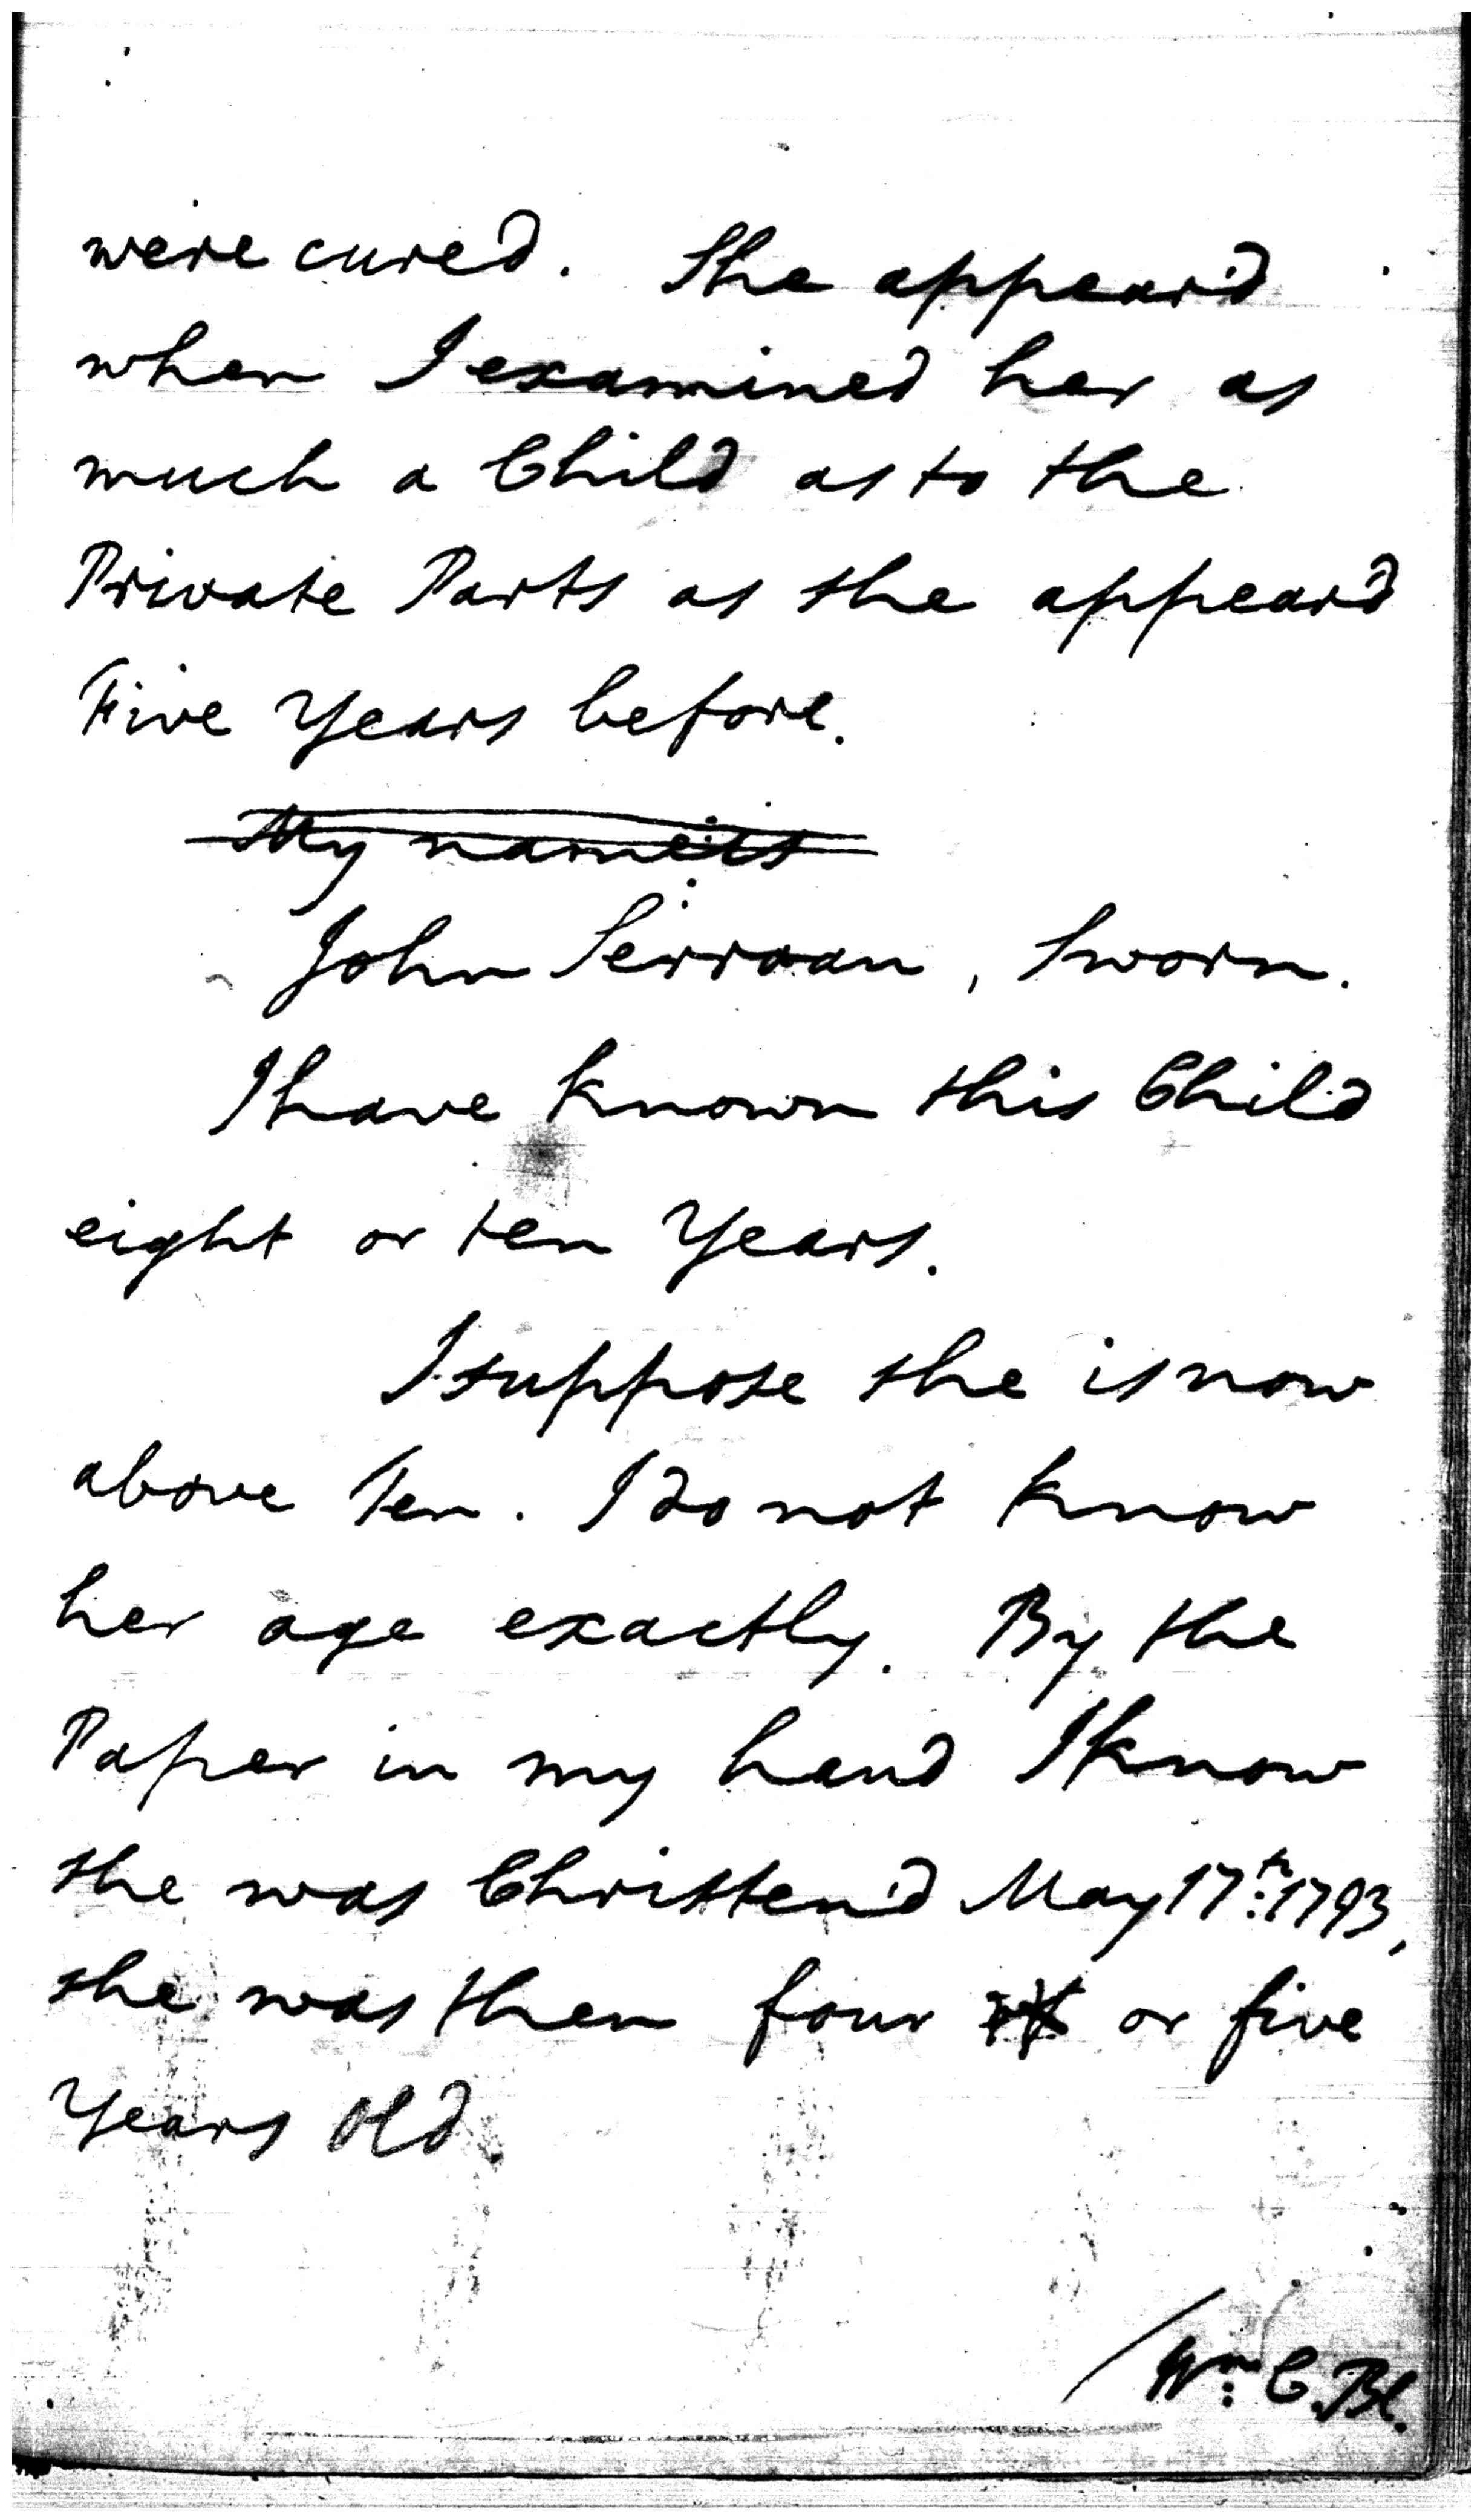 were cured. She appear'd
when I examined her as
much a Child as to the
Private Parts as she appear'd
Five Years before.
My name is
John Serroan, Sworn.
I have known this Child
eight or ten Years.
I suppose she is now
above Ten. I do not know
her age exactly. By the
Paper in my hand I know
she was Christen'd May 17th: 1793,
she was then four or five
Years Old.
Wm: C. Bl.